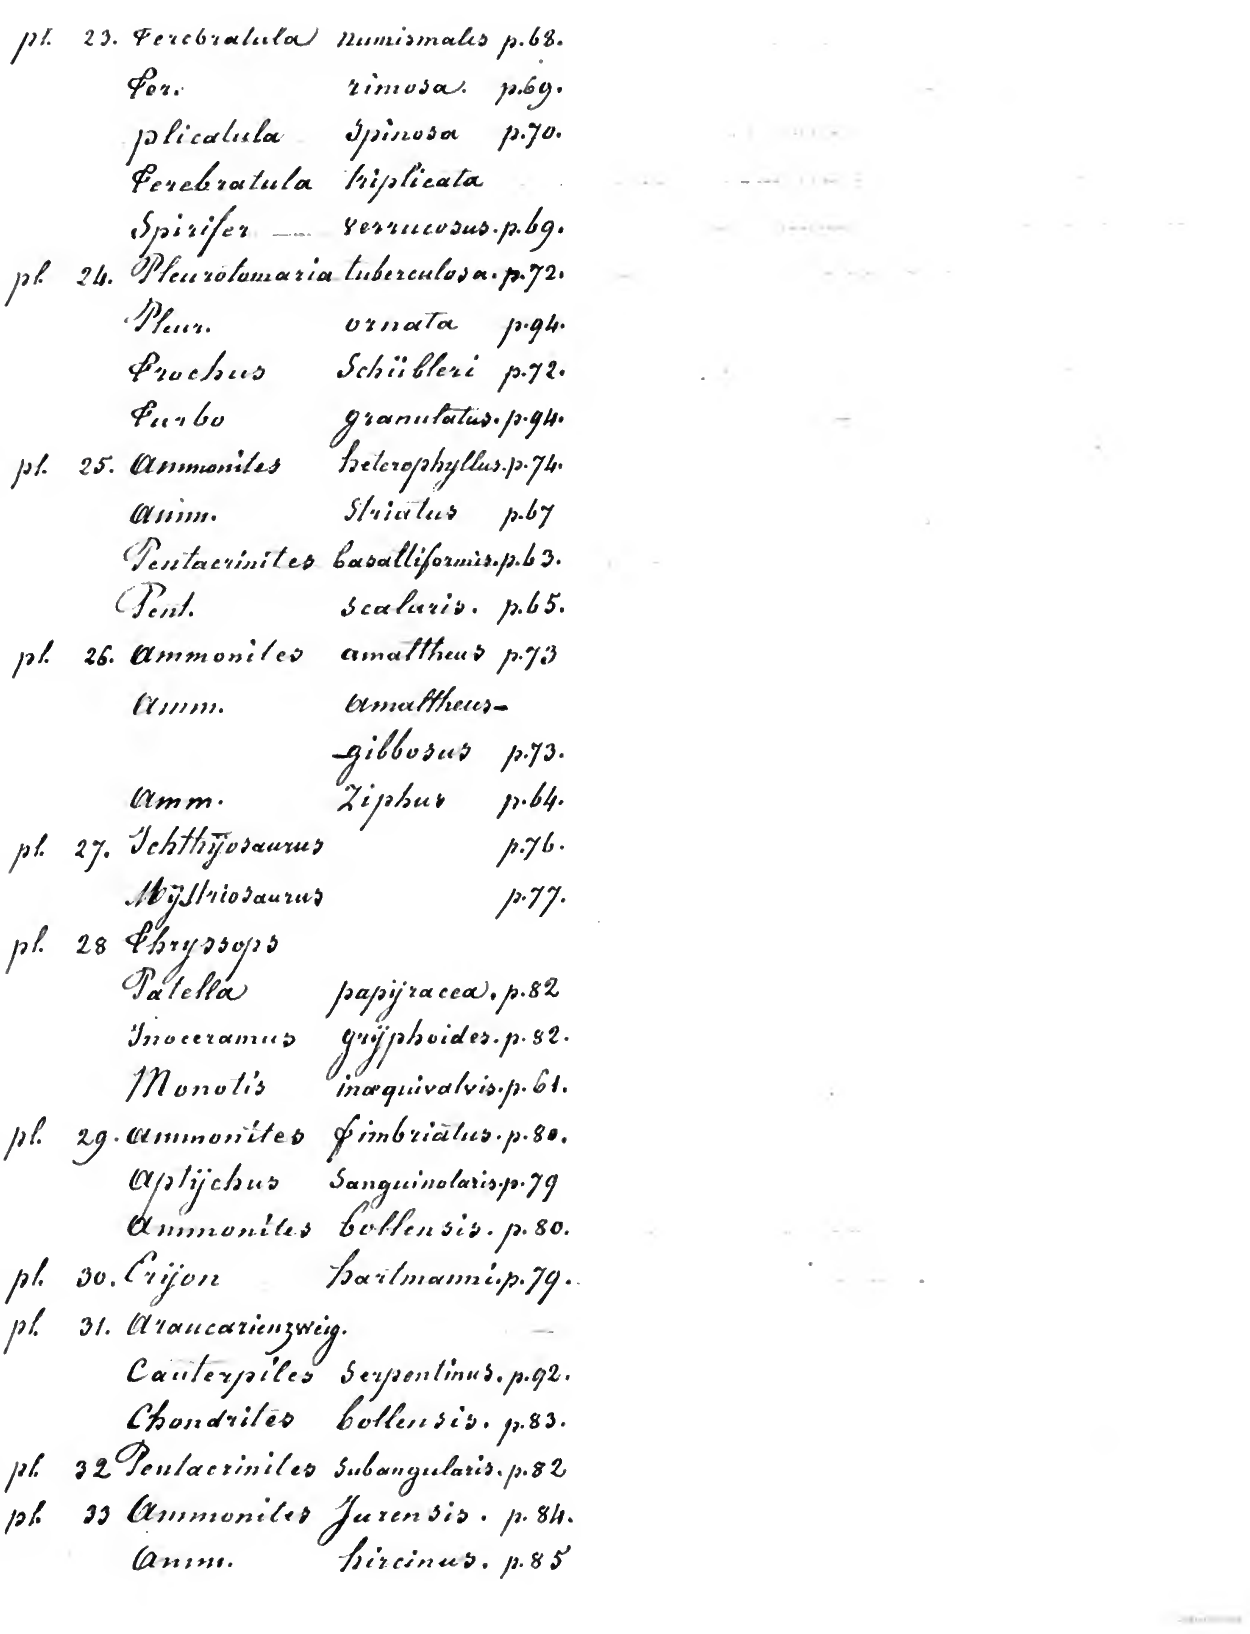 pl. 23. Terebratula numismalis p.68.
Ter. rimosa. p.69.
plicatula Spinosa p.70.
Terebratula triplicata
Spirifer — verrucosus. p.69.
pl. 24. Pleurotomaria tuberculosa. p.72.
Pleur. ornata p.94.
Trochus Schübleri p.72.
Turbo granulatus. p.94.
pl. 25. Ammonites heterophyllus. p.74.
Amm. Striatus p.67
Pentacrinites basaltiformis. p.63.
Pent. scalaris. p.65.
pl. 26. Ammonites amaltheus p.73
Amm. Amaltheus-
-gibbosus p.73.
Amm. Ziphus p.64.
pl. 27. Ichthÿosaurus p.76.
Mÿstriosaurus p.77.
pl. 28 Thryssops
Patella papÿracea. p.82
Inoceramus grÿphoides. p.82.
Monotis inæquivalvis. p.61.
pl. 29. Ammonites fimbriatus. p.80.
Aptÿchus Sanguinolaris. p.79
Ammonites bollensis. p.80.
pl. 30. Erÿon hartmanni. p.79.
pl. 31. Araucarienzweig.
Cauterpites Serpentinus. p.92.
Chondrites bollensis. p.83.
pl. 32 Pentacrinites Subangularis. p.82
pl. 33 Ammonites Jurensis. p.84.
Amm. hircinus. p.85